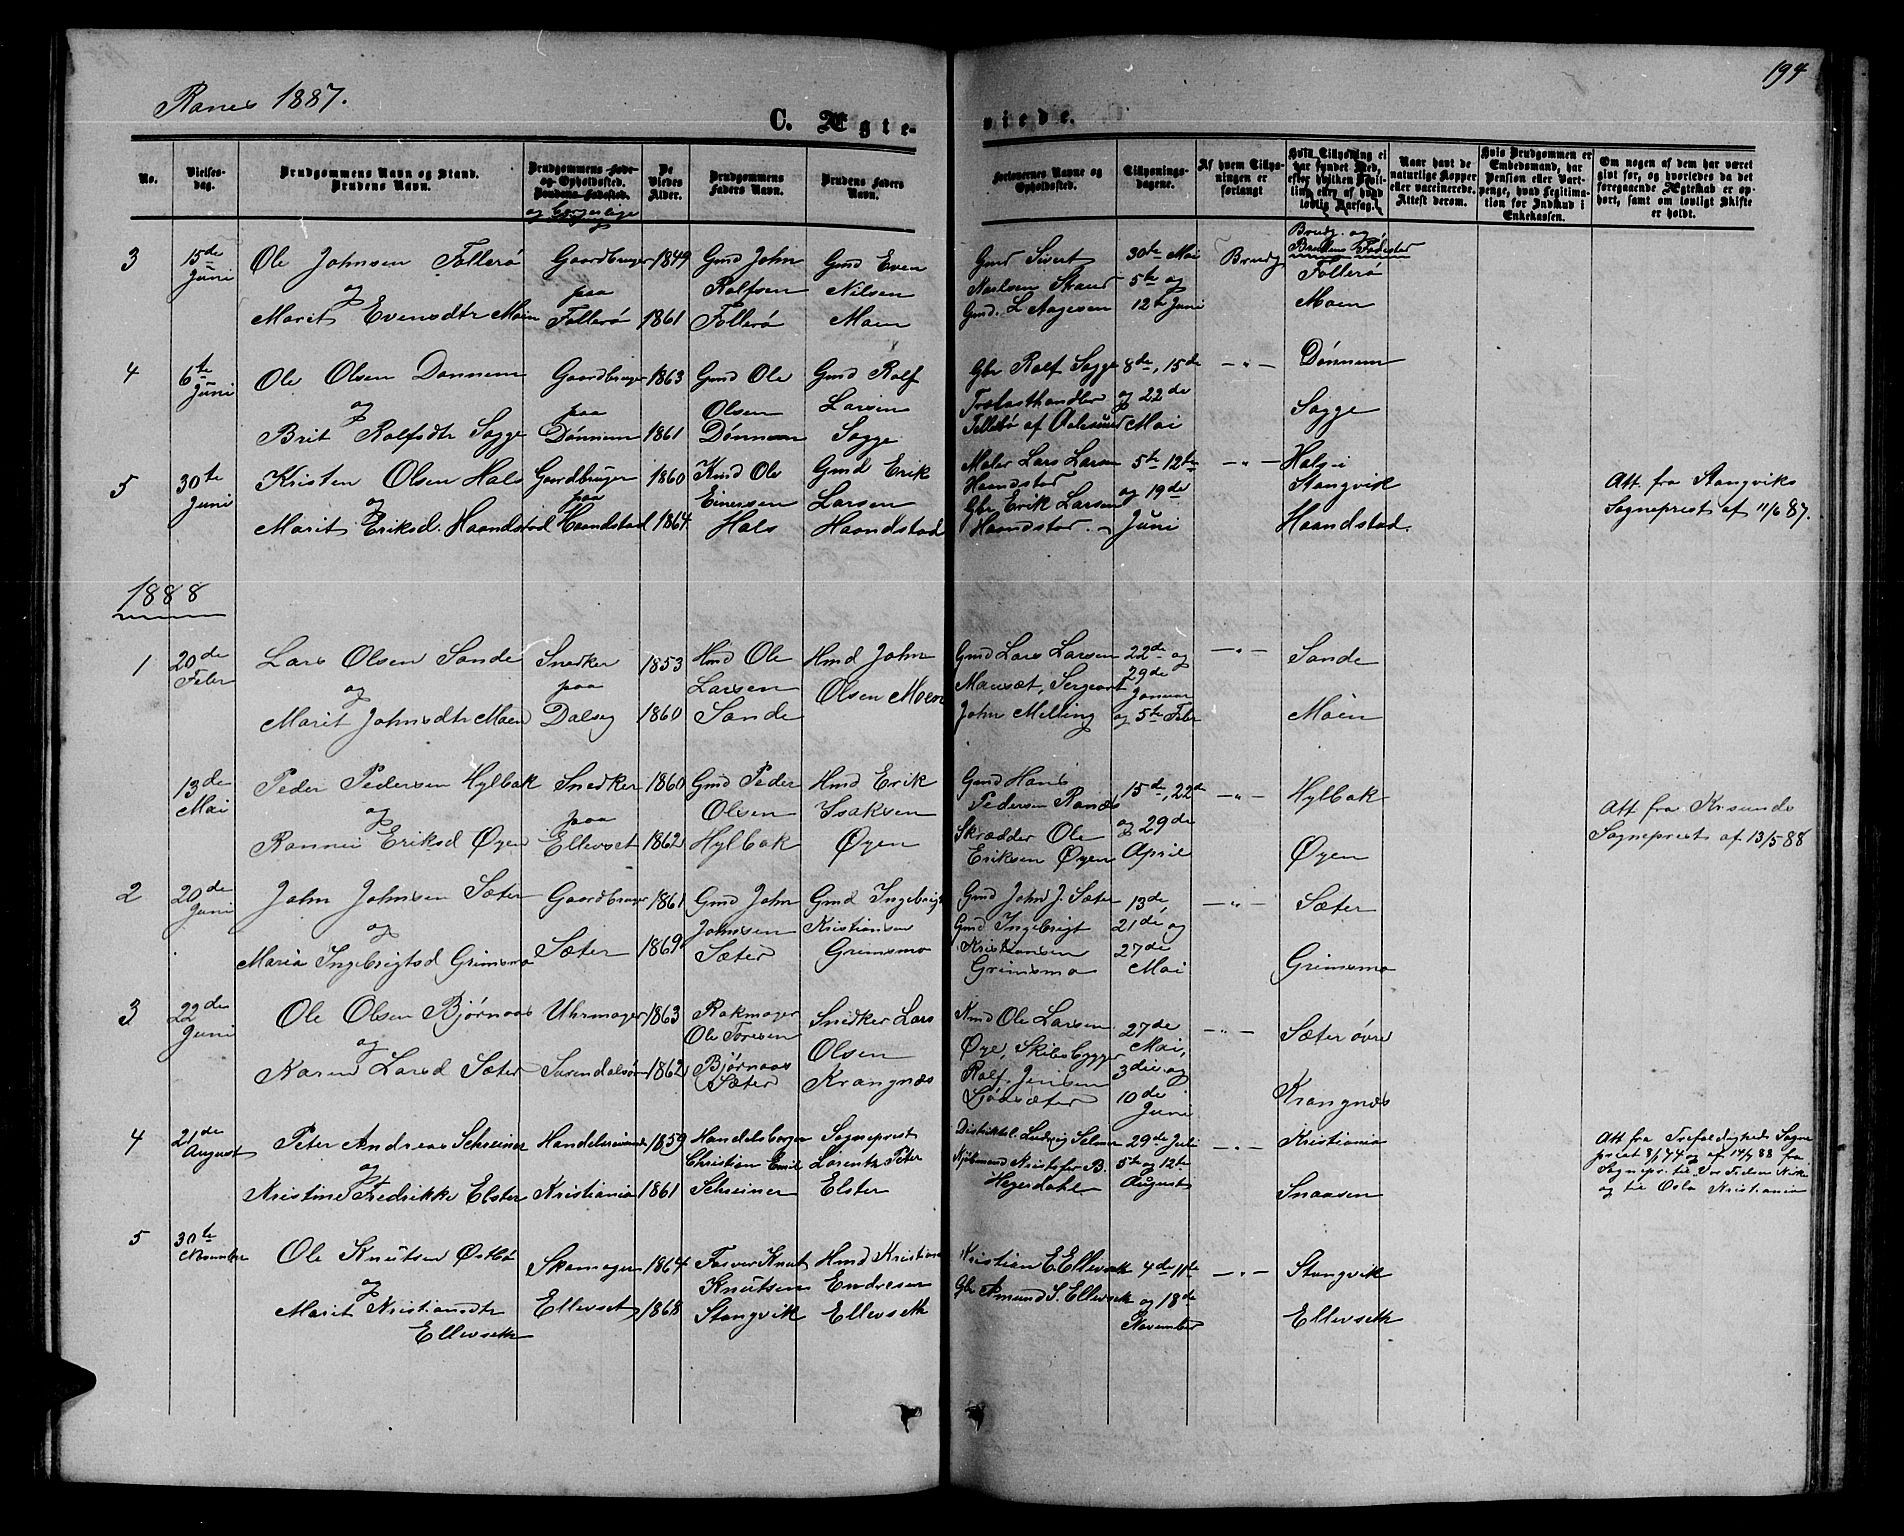 Ranes 1887.
194
C. Ægte-
viede.
No.
Vielses-
dag.
Brudgommens Navn og Stand.
Brudens Navn.
Brudgommens Føde-
og Opholdssted.
Brudens Fødested.
og borgerlige
De
Viedes
Alder.
Brudgommens
Faders Navn.
Brudens Faders
Navn.
Forlovernes Navne og
Opholdssted.
Tillysnings-
dagene.
Af hvem Tillys-
ningen er
forlangt
Hvis Tillysning ei
har fundet Sted,
efter hvilken Bevil-
ling eller af hvad
lovlig Aarsag.
Naar havt de
naturlige Kopper
eller vaccinerede.
Attest derom.
Hvis Brudgommen er
Embedsmand, har
Pension eller Vart-
penge, hvad Legitima-
tion for Indskud i
Enkekassen.
Om nogen af dem har været
gift før, og hvorledes da det
foregaaende Ægteskab er op-
hørt, samt om lovligt Skifte
er holdt.
Brudg. og
Brudens Fødested
3 15de Juni
Ole Johnsen Follerø
og
Marit Evensdtr Moen
Gaardbruger
paa
Follerø
1849
1861
Gmd John
Rolfsen
Follerø
Gmd Even
Nilsen
Moen
Gmd Sivert
Gmd. L Aagesen
30te Mai
5te og
12te Juni
Brudg
Follerø
Moen
4 6te Juni
Ole Olsen Dønnem
og
Brit Rolfsdtr Sogge
Gaardbruger
paa
Dønnem
1863
1861
Gmd Ole
Olsen
Dønnem
Gmd Rolf
Larsen
Sogge
Gbr Rolf Sogge
Trælasthandler
af Aalesund
8de, 15de
og 22de
Mai
-"-
Dønnem
Sogge
5 30te Juni
Kristen Olsen Hals
og
Marit Eriksd. Haandstad
Gaardbruger
paa
Haandstad
1860
1864
Kmd Ole
Einersen
Hals
Gmd Erik
Larsen
Haandstad
Maler Lars Larsen
Haandstad
Gbr Erik Larsen
Haandstad
5te 12te
og 19de
Juni
-"-
Hals i
Stangvik
Haandstad.
Att. fra Stangviks
Sogneprest af 11/6 87.
1888
1 20de Febr
Lars Olsen Sande
og
Marit Johnsdtr Moen
Snedker
paa
Dalseg
1853
1860
Hmd Ole
Larsen
Sande
Hmd John
Olsen Moen
Gmd Lars Larsen
Mausæt, Sergeant
John Melling
22de og
29de
Januar
og 5te Febr
-"-
Sande
Moen
13de Mai
Peder Pedersen Hylbak
og
Rannei Eriksd Øyen
Snedker
paa
Ellevset
1860
1862
Gmd Peder
Olsen
Hylbak
Hmd Erik
Isaksen
Øyen
Gmd Hans
Pedersen Ranæs
Skrædder Ole
Eriksen Øyen
15de, 22de
og 29de
April
-"-
Hylbak
Øyen
Att fra Krsunds
Sogneprest af 13/5 88
2 20de Juni
John Johnsen Sæter
og
Maria Ingebrigtsd Grimsmo
Gaardbruger
Sæter
1861
1869
Gmd John
Johnsen
Sæter
Gmd Ingebrigt
Kristiansen
Grimsmo
Gmd John J. Sæter
Gmd Ingebrigt
Kristiansen
Grimsmo
13de,
21de og
27de
Mai
-"-
Sæter
Grimsmo
3 22de Juni
Ole Olsen Bjørnaas
og
Karen Larsd Sæter
Uhrmager
Surendalsør
1863
1862
Rokmager
Ole Toresen
Bjørnaas
Sæter
Snedker Lars
Olsen
Krangnæs
Kmd Ole Larsen
Øye, Skibsbygger
Rolf Jensen
27de
Mai,
3die og
10de
Juni
-"-
Sæter øvre
Krangnæs
4 21de August
Peter Andreas Schreiner
og
Kristine Fredrikke Elster
Handelsreisende
Kristiania
1859
1861
Handelsborger
Christian Emil
Schreiner
Sogneprest
Lorentz Peter
Elster
Distriktsl. Ludvig Selmer
Kjøbmand Kristofer B.
Heyerdahl
29de Juli
5te og 12te
August
-"-
Kristiania
Snaasen
Att fra Trefoldigheds Sogne
prest 8/7 74 og af 14/7 88 fra
Sognepr. til Vor Frelsers Kirke
og til Oslo Kristiania
5 30te November
Ole Knutsen Østbø
og
Marit Kristiansdtr
Ellevseth
Skomager
Ellevset
1864
1868
Farver Knut
Knutsen
Stangvik
Hmd Kristian
Endresen
Ellevseth
Kristian E. Ellevseth
Gbr Amund S. Ellevseth
4de 11te
og 18de
November
-"-
Stangvik
Ellevseth